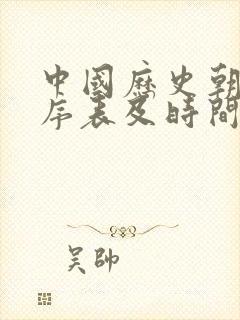 中國歷史朝
序表及時間
吴帥